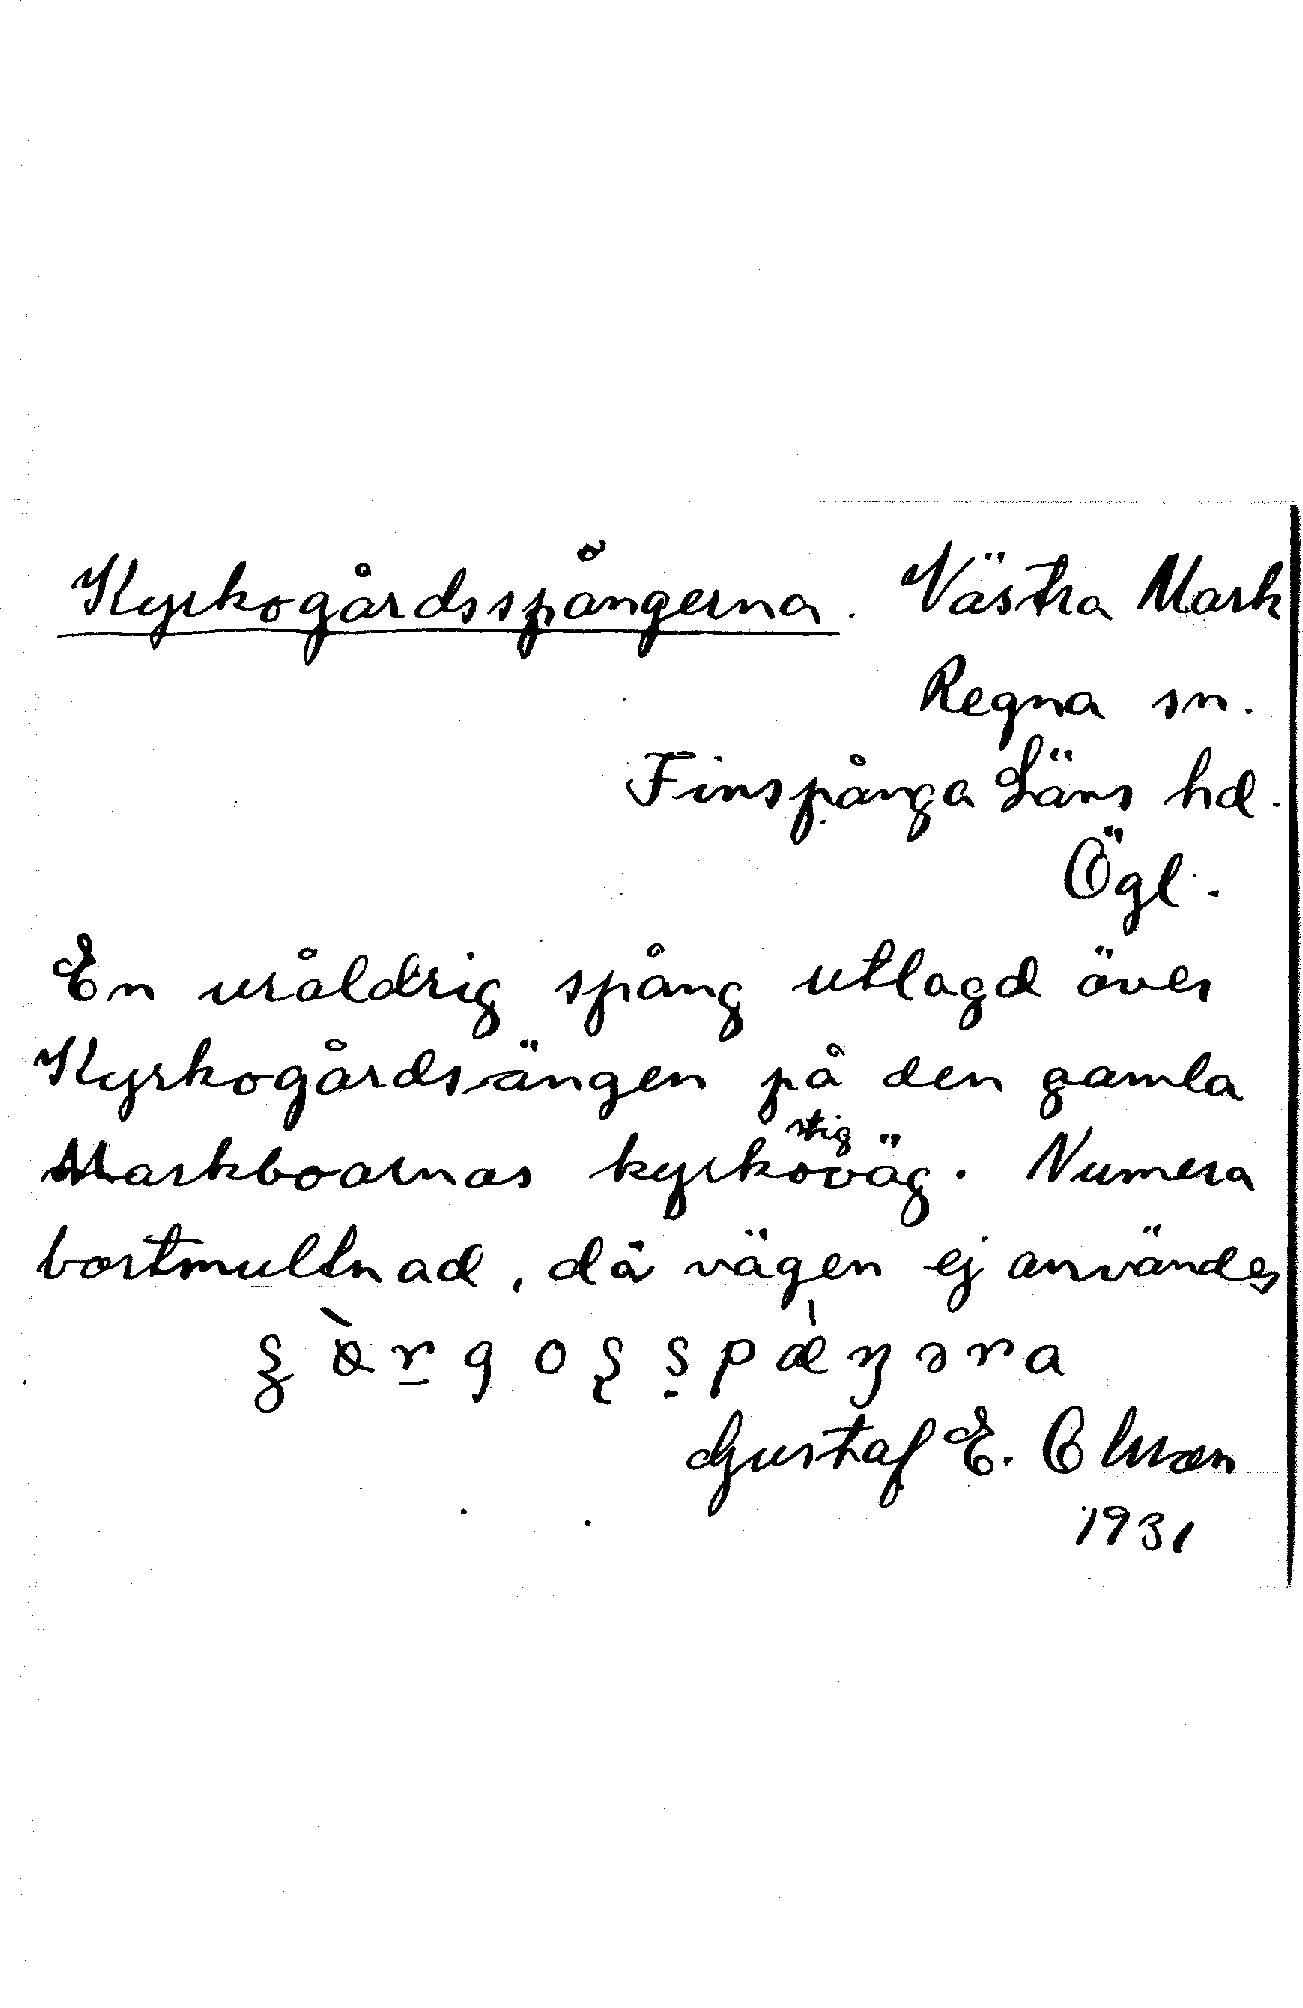 Kyrkogårdsspångerna. Västra Mark
Regna sn.
Finspånga Läns hd.
Ögl.
En uråldrig spång utlagd över
Kyrkogårdsängen på den gamla
stig
Markboarnas kyrkoväg. Numera
bortmultnad, då vägen ej användes
Gustaf E. Olsson
1931